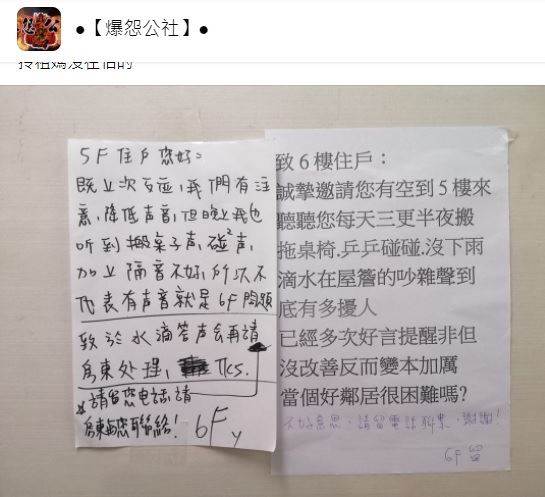 ●【爆怨公社】●
5F住戶您好:
既上次反应,我們有注
意,降低声音,但晚上我也
听到搬桌子声,碰²声,
加上隔音不好,所以不
代表有声音就是6F問題
致於水滴答声会再請
房東处理, Tks.
*請留您电話,請
房東與您聯絡! 6F
致6樓住戶：
誠摯邀請您有空到5樓來
聽聽您每天三更半夜搬
拖桌椅.乒乒碰碰.沒下雨
滴水在屋簷的吵雜聲到
底有多擾人
已經多次好言提醒非但
沒改善反而變本加厲
當個好鄰居很困難嗎?
不好意思,請留電話聯東,謝謝!
6F 留